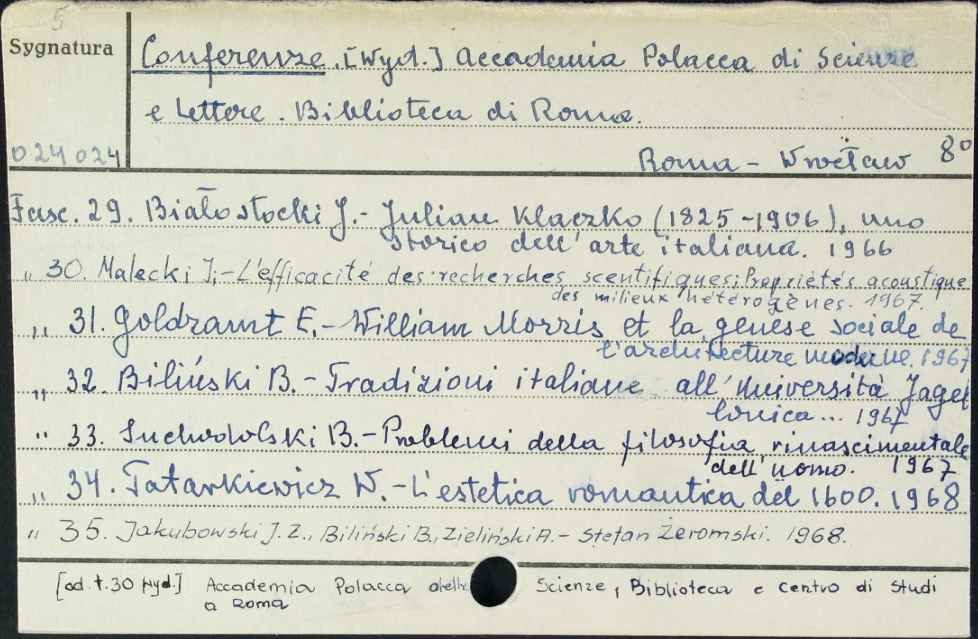 5
Sygnatura
Conferenze. [Wyd.] Accademia Polacca di Scienze
e Lettere. Biblioteca di Roma.
024024
Roma - Wrocław 8°
Fasc. 29. Białostocki J.- Julian Klaczko (1825-1906), uno
storico dell'arte italiana. 1966
„ 30. Malecki I,-L'efficacité des recherches scentifiques; Propriétés acoustique
des milieux hétérogènes. 1967.
„ 31. Goldzamt E.- William Morris et la genese sociale de
l'architecture moderne. 1967
„ 32. Biliński B.- Tradizioni italiane all'Università Jagel
lonica... 1967
„ 33. Suchodolski B.-Problemi della filosofia rinascimentale
dell'uomo. 1967
„ 34. Tatarkiewicz W.-L'estetica romantica del 1600. 1968
„ 35. Jakubowski J. Z., Biliński B., Zieliński A.- Stefan Żeromski. 1968.
[od. t. 30 wyd.] Accademia Polacca delle Scienze, Biblioteca e centro di studi
a Roma